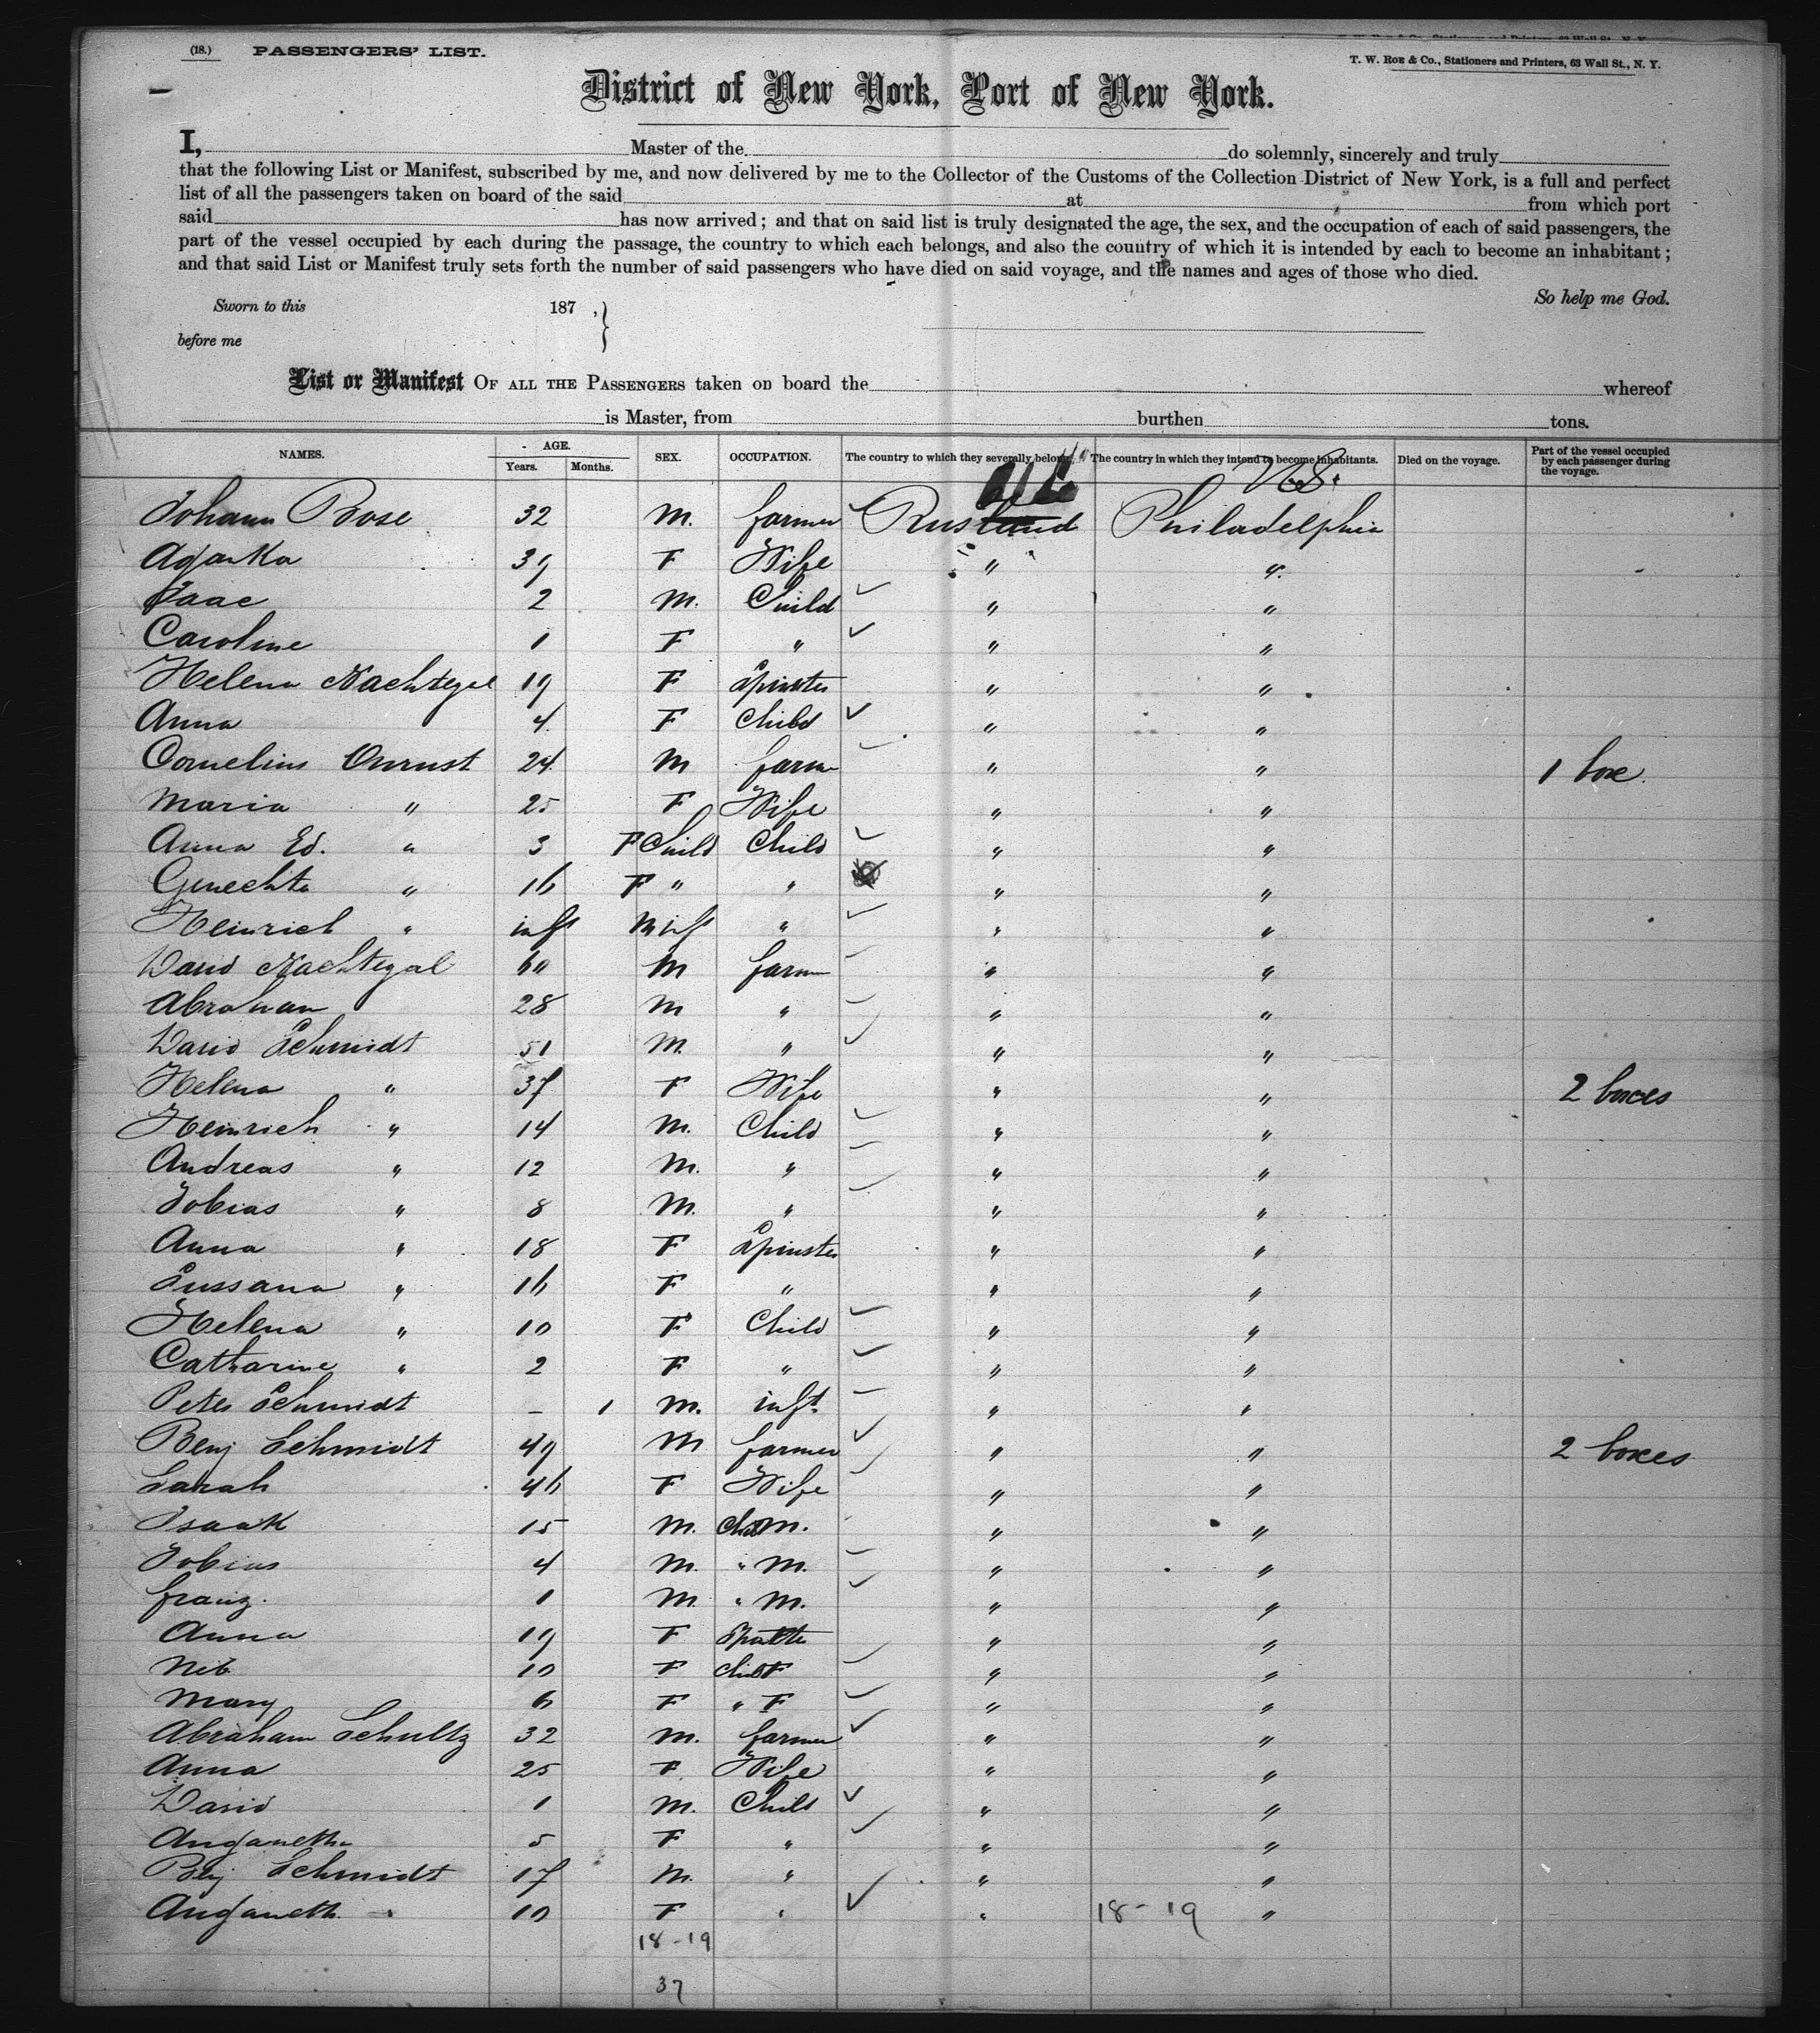 (18.) PASSENGERS' LIST.
T. W. Roe & Co., Stationers and Printers, 63 Wall St., N. Y.
District of New York, Port of New York.
I, Master of the do solemnly, sincerely and truly
that the following List or Manifest, subscribed by me, and now delivered by me to the Collector of the Customs of the Collection District of New York, is a full and perfect
list of all the passengers taken on board of the said at from which port
said has now arrived; and that on said list is truly designated the age, the sex, and the occupation of each of said passengers, the
part of the vessel occupied by each during the passage, the country to which each belongs, and also the country of which it is intended by each to become an inhabitant;
and that said List or Manifest truly sets forth the number of said passengers who have died on said voyage, and the names and ages of those who died.
So help me God.
Sworn to this 187 ,
before me
List or Manifest Of all the Passengers taken on board the whereof
is Master, from burthen tons.
NAMES. AGE. Years. Months. SEX. OCCUPATION. The country to which they severally belong. The country in which they intend to become inhabitants. Died on the voyage. Part of the vessel occupied by each passenger during the voyage.
U.S.
Johann Bose 32 M. farmer Rusland Philadelphia
Aganka 39 F Wife " "
Isaac 2 M. Child " "
Caroline 1 F " " "
Helena Nachtegal 19 F Spinster " "
Anna 4 F Child " "
Cornelius Onrust 24 M farm " " 1 box.
Maria " 25 F Wife " "
Anna Ed. " 3 F Child Child " "
" 16 F " " " "
Heinrich " inft M inft " " "
David Nachtegal 60 M farm " "
Abraham 28 M " " "
David Schmidt 51 M. " " "
Helena " 37 F Wife " " 2 boxes
Heinrich " 14 M. Child " "
Andreas " 12 M. " " "
Tobias " 8 M. " " "
Anna " 18 F Spinster " "
Sussana " 16 F " " "
Helena " 10 F Child " "
Catharine " 2 F " " "
Peter Schmidt - 1 M. inft. " "
Benj Schmidt 49 M farmer " " 2 boxes
Sarah 46 F Wife " "
Isaak 15 M. Child M. " "
Tobias 4 M. " M. " "
Franz. 1 M. " M. " "
Anna 19 F " "
Neb 10 F Child F " "
Mary 6 F " F " "
Abraham Schultz 32 M. farmer " "
Anna 25 F. Wife " "
David 1 M. Child " "
Anganetha 5 F " " "
Benj Schmidt 17 M. " " "
Anganeth. 10 F " " 18-19 "
18-19
37